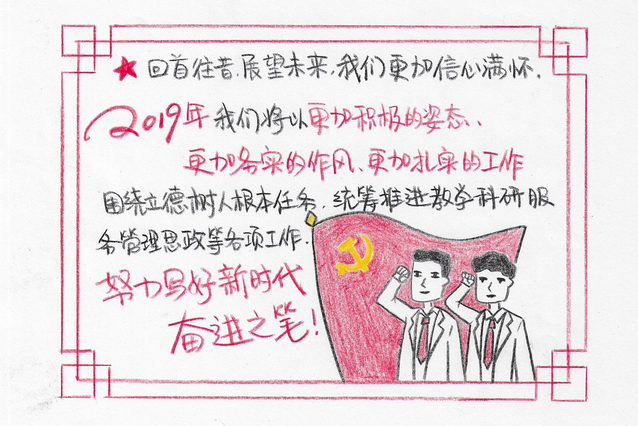 ★回首往昔,展望未来,我们更加信心满怀.
2019年我们将以更加积极的姿态、
更加务实的作风、更加扎实的工作
围绕立德树人根本任务,统筹推进教学科研服
务管理思政等各项工作.
努力写好新时代
奋进之笔!